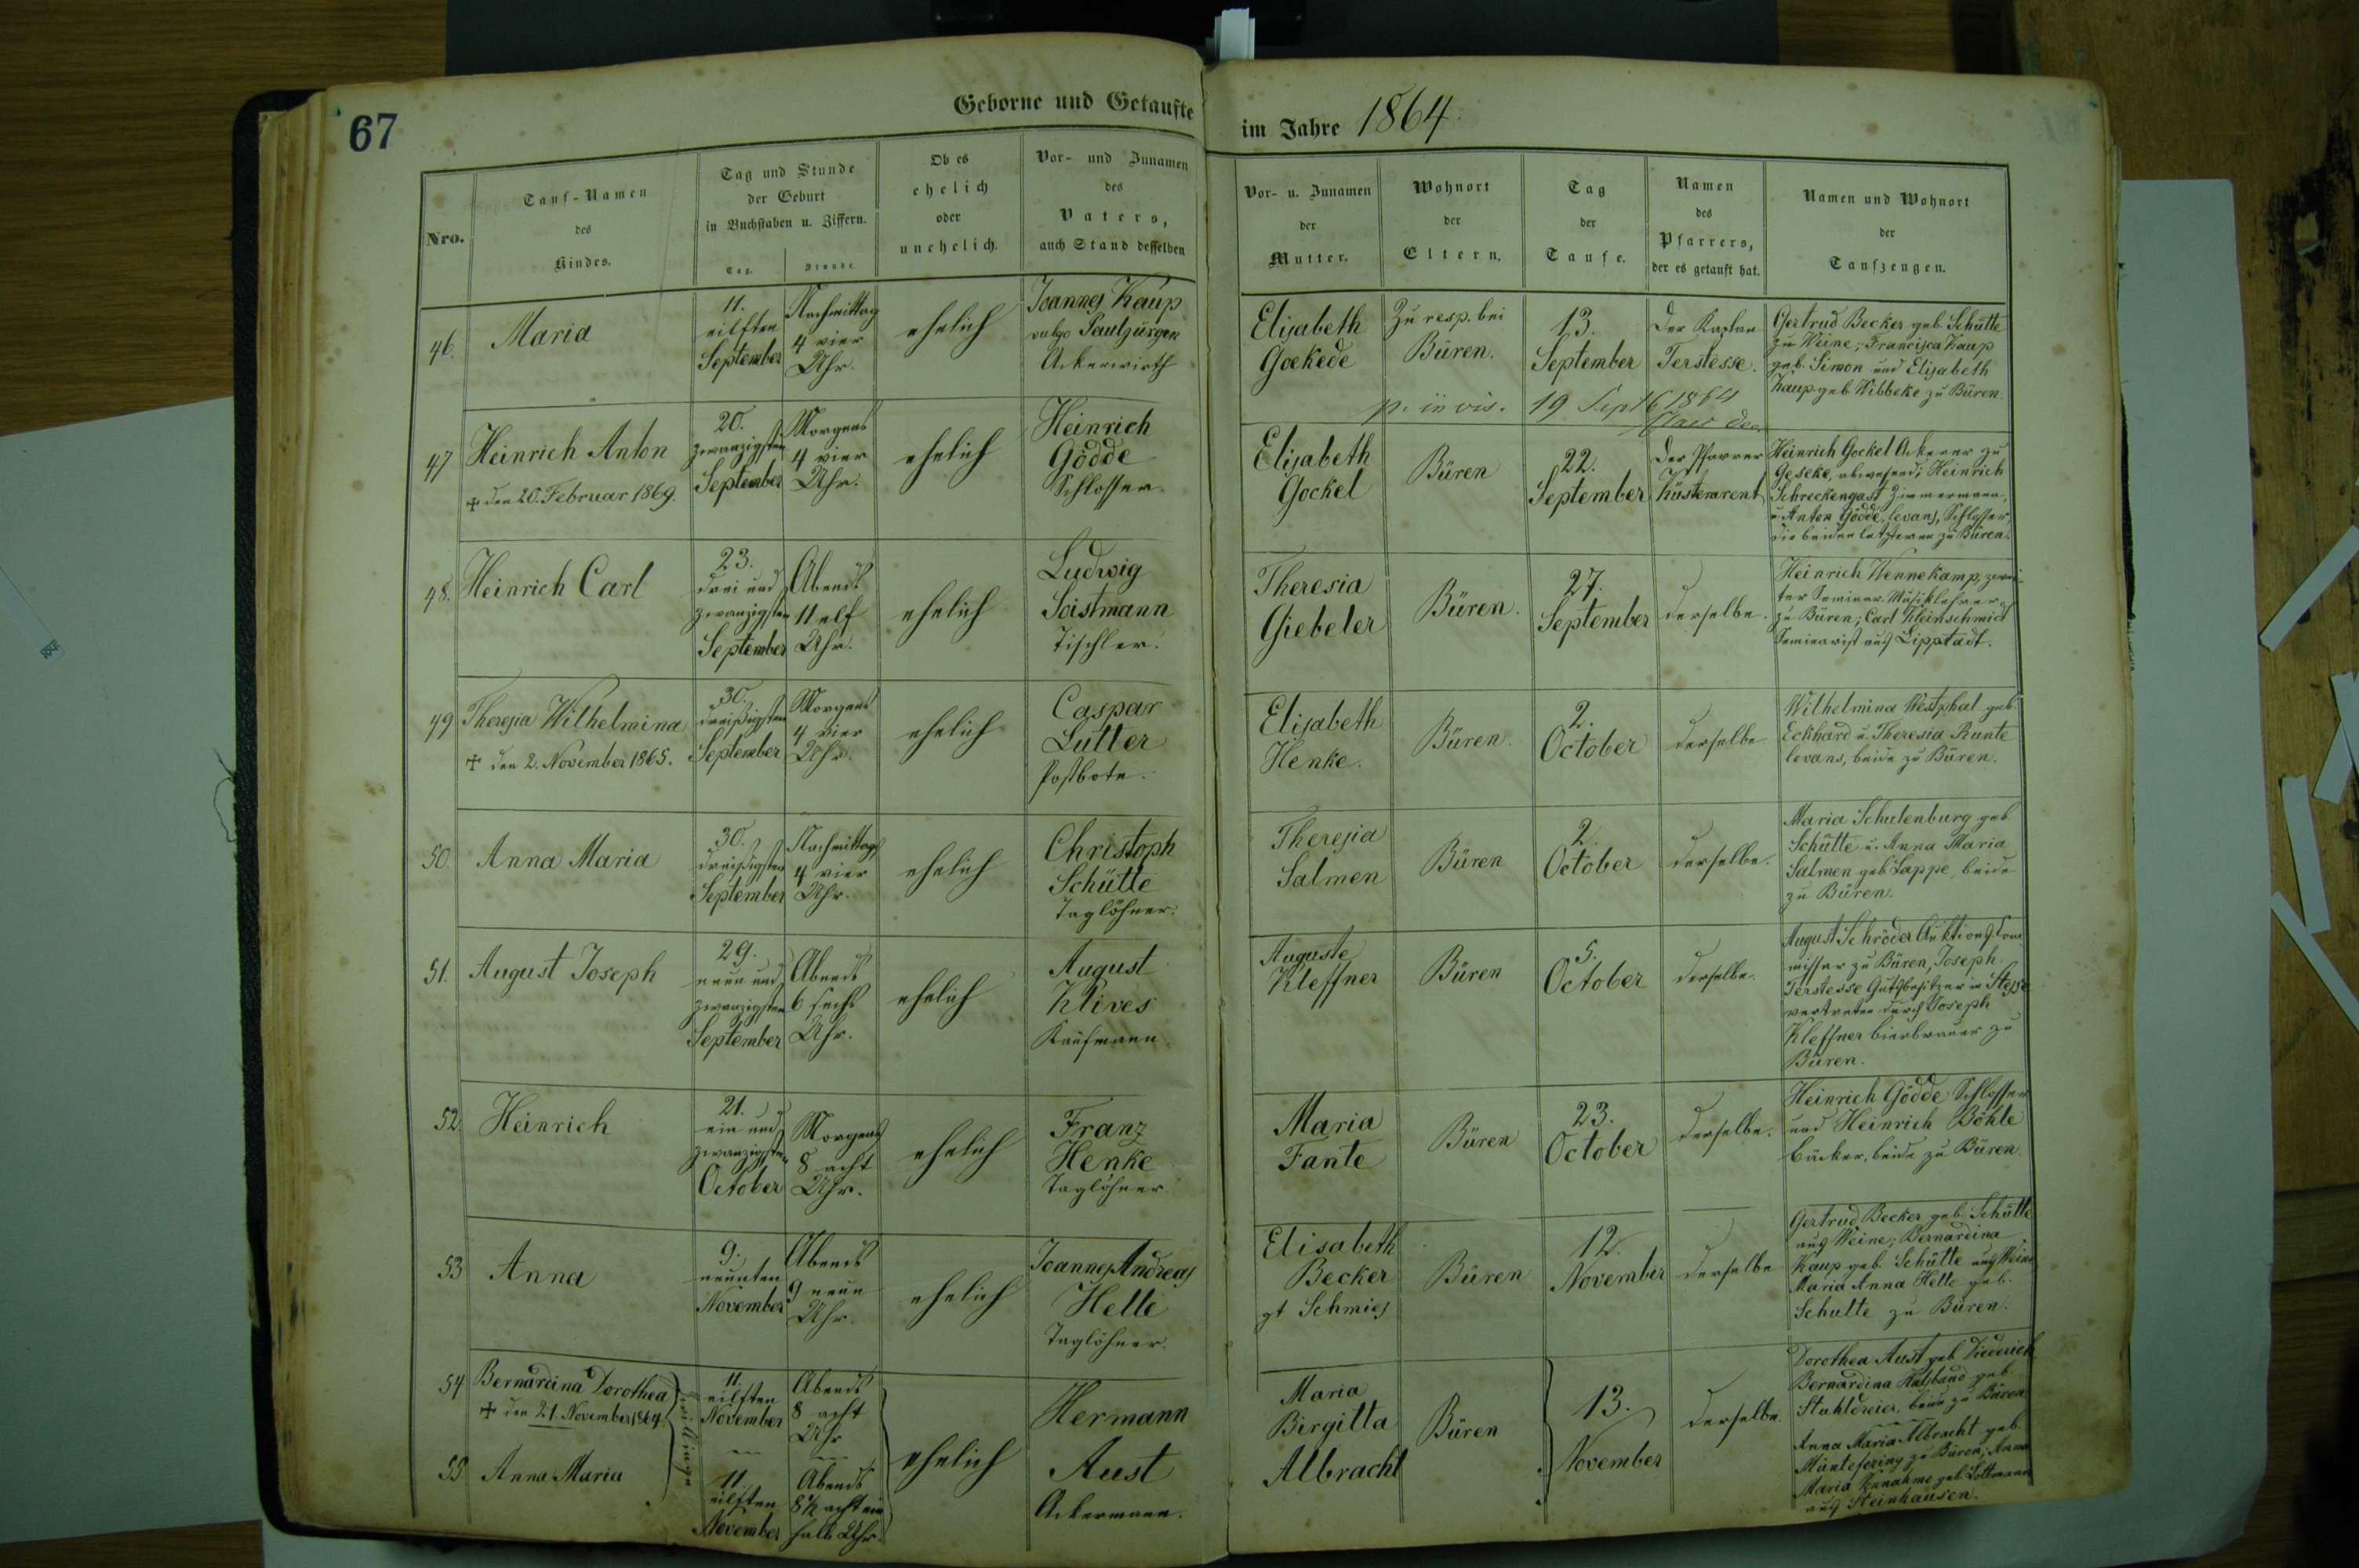 67
Geborne und Getaufte
im Jahre 1864.
Nro.
Tauf-Namen
des
Kindes.
Tag und Stunde
der Geburt
in Buchstaben u. Ziffern.
Tag.
Stunde
Ob es
ehelich
oder
unehelich.
Vor- und Zunamen
des
Vaters,
auch Stand desselben
Vor- u. Zunamen
der
Mutter.
Wohnort
der
Eltern.
Tag
der
Taufe.
Namen
des
Pfarrers,
der es getauft hat.
Namen und Wohnort
der
Taufzeugen.
46.
Maria
11.
eilften
September
Nachmittag
4 vier
Uhr.
ehelich
Joannes Kaup
vulgo Pauljürgen
Ackerwirth
Elisabeth
Goekede
Zu resp. bei
Büren.
13.
September
Der Kaplan
Terstesse.
Gertrud Becker geb. Schütte
zu Weine; Francisca Kaup
geb. Simon und Elisabeth
Kaup geb Wibbeke zu Büren.
19 Sept 1864
47
Heinrich Anton
✝ den 20. Februar 1869.
20.
zwanzigsten
September
Morgens
4 vier
Uhr.
ehelich
Heinrich
Gödde
Schlosser.
Elisabeth
Gockel
Büren
22.
September
Der Pfarrer
Küsterarent
Heinrich Gockel Ackerer zu
Geseke, abwesend; Heinrich
Schreckengast Zimmermann,
u. Anton Gödde, levans, Schlosser,
die beiden letzteren zu Büren.
48.
Heinrich Carl
23.
drei und
zwanzigsten
September
Abends
11 elf
Uhr.
ehelich
Ludwig
Soistmann
Tischler.
Theresia
Giebeler
Büren.
27.
September
derselbe.
Heinrich Wennekamp, zwei-
ter Seminar-Musiklehrer
zu Büren; Carl Kleinschmidt
Seminarist aus Lippstadt.
49
Theresia Wilhelmina
✝ den 2. November 1865.
30.
dreißigsten
September
Morgens
4 vier
Uhr.
ehelich
Caspar
Lutter
Postbote.
Elisabeth
Henke.
Büren.
2.
October
derselbe
Wilhelmina Westphal geb.
Eckhard u. Theresia Runte
levans, beide zu Büren.
50.
Anna Maria
30.
dreißigsten
September
Nachmittags
4 vier
Uhr.
ehelich
Christoph
Schütte
Taglöhner.
Theresia
Salmen
Büren
2.
October
derselbe.
Maria Schulenburg geb
Schütte u. Anna Maria
Salmen geb Sappe, beide
zu Büren.
51.
August Joseph
29.
neun und
zwanzigsten
September
Abends
6 sechs
Uhr.
ehelich
August
Klives
Kaufmann
Auguste
Kleffner
Büren
5.
October
derselbe.
August Schröder Auktions Com
missar zu Büren, Joseph
Terstesse Gutsbesitzer in
vertreten durch Joseph
Kleffner bierbrauer zu
Büren.
52.
Heinrich
21.
ein und
zwanzigsten
October
Morgens
8 acht
Uhr.
ehelich
Franz
Henke
Taglöhner
Maria
Fante
Büren
23.
October
derselbe.
Heinrich Gödde Schlosser
und Heinrich Böhle
Bäcker, beide zu Büren.
53
Anna
9.
neunten
November
Abends
9 neun
Uhr.
ehelich
Joannes Andreas
Helle
Taglöhner.
Elisabeth
Becker
gt Schmies
Büren
12.
November
derselbe
Gertrud Becker geb Schütte
aus Weine; Bernardina
Kaup geb. Schütte aus Weine
Maria Anna Helle geb.
Schulte zu Büren.
54
Bernardina Dorothea
✝ den 21. November 1864
Zwillinge
11.
eilften
November
Abends
8 acht
Uhr
ehelich
Hermann
Aust
Ackermann.
Maria
Birgitta
Albracht
Büren
13.
November
derselbe.
Dorothea Aust geb Diederich
Bernardina Halsband geb.
Stuhldreier, beide zu Büren
55
Anna Maria
11.
eilften
November
Abends
8½ acht ein
halb Uhr.
Anna Maria Albracht geb.
zu Büren; Anna
Maria geb Lottmann
aus Steinhausen.